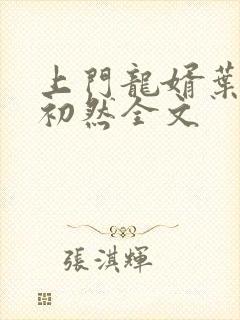 上門龍婿葉
初然全文
張淇輝